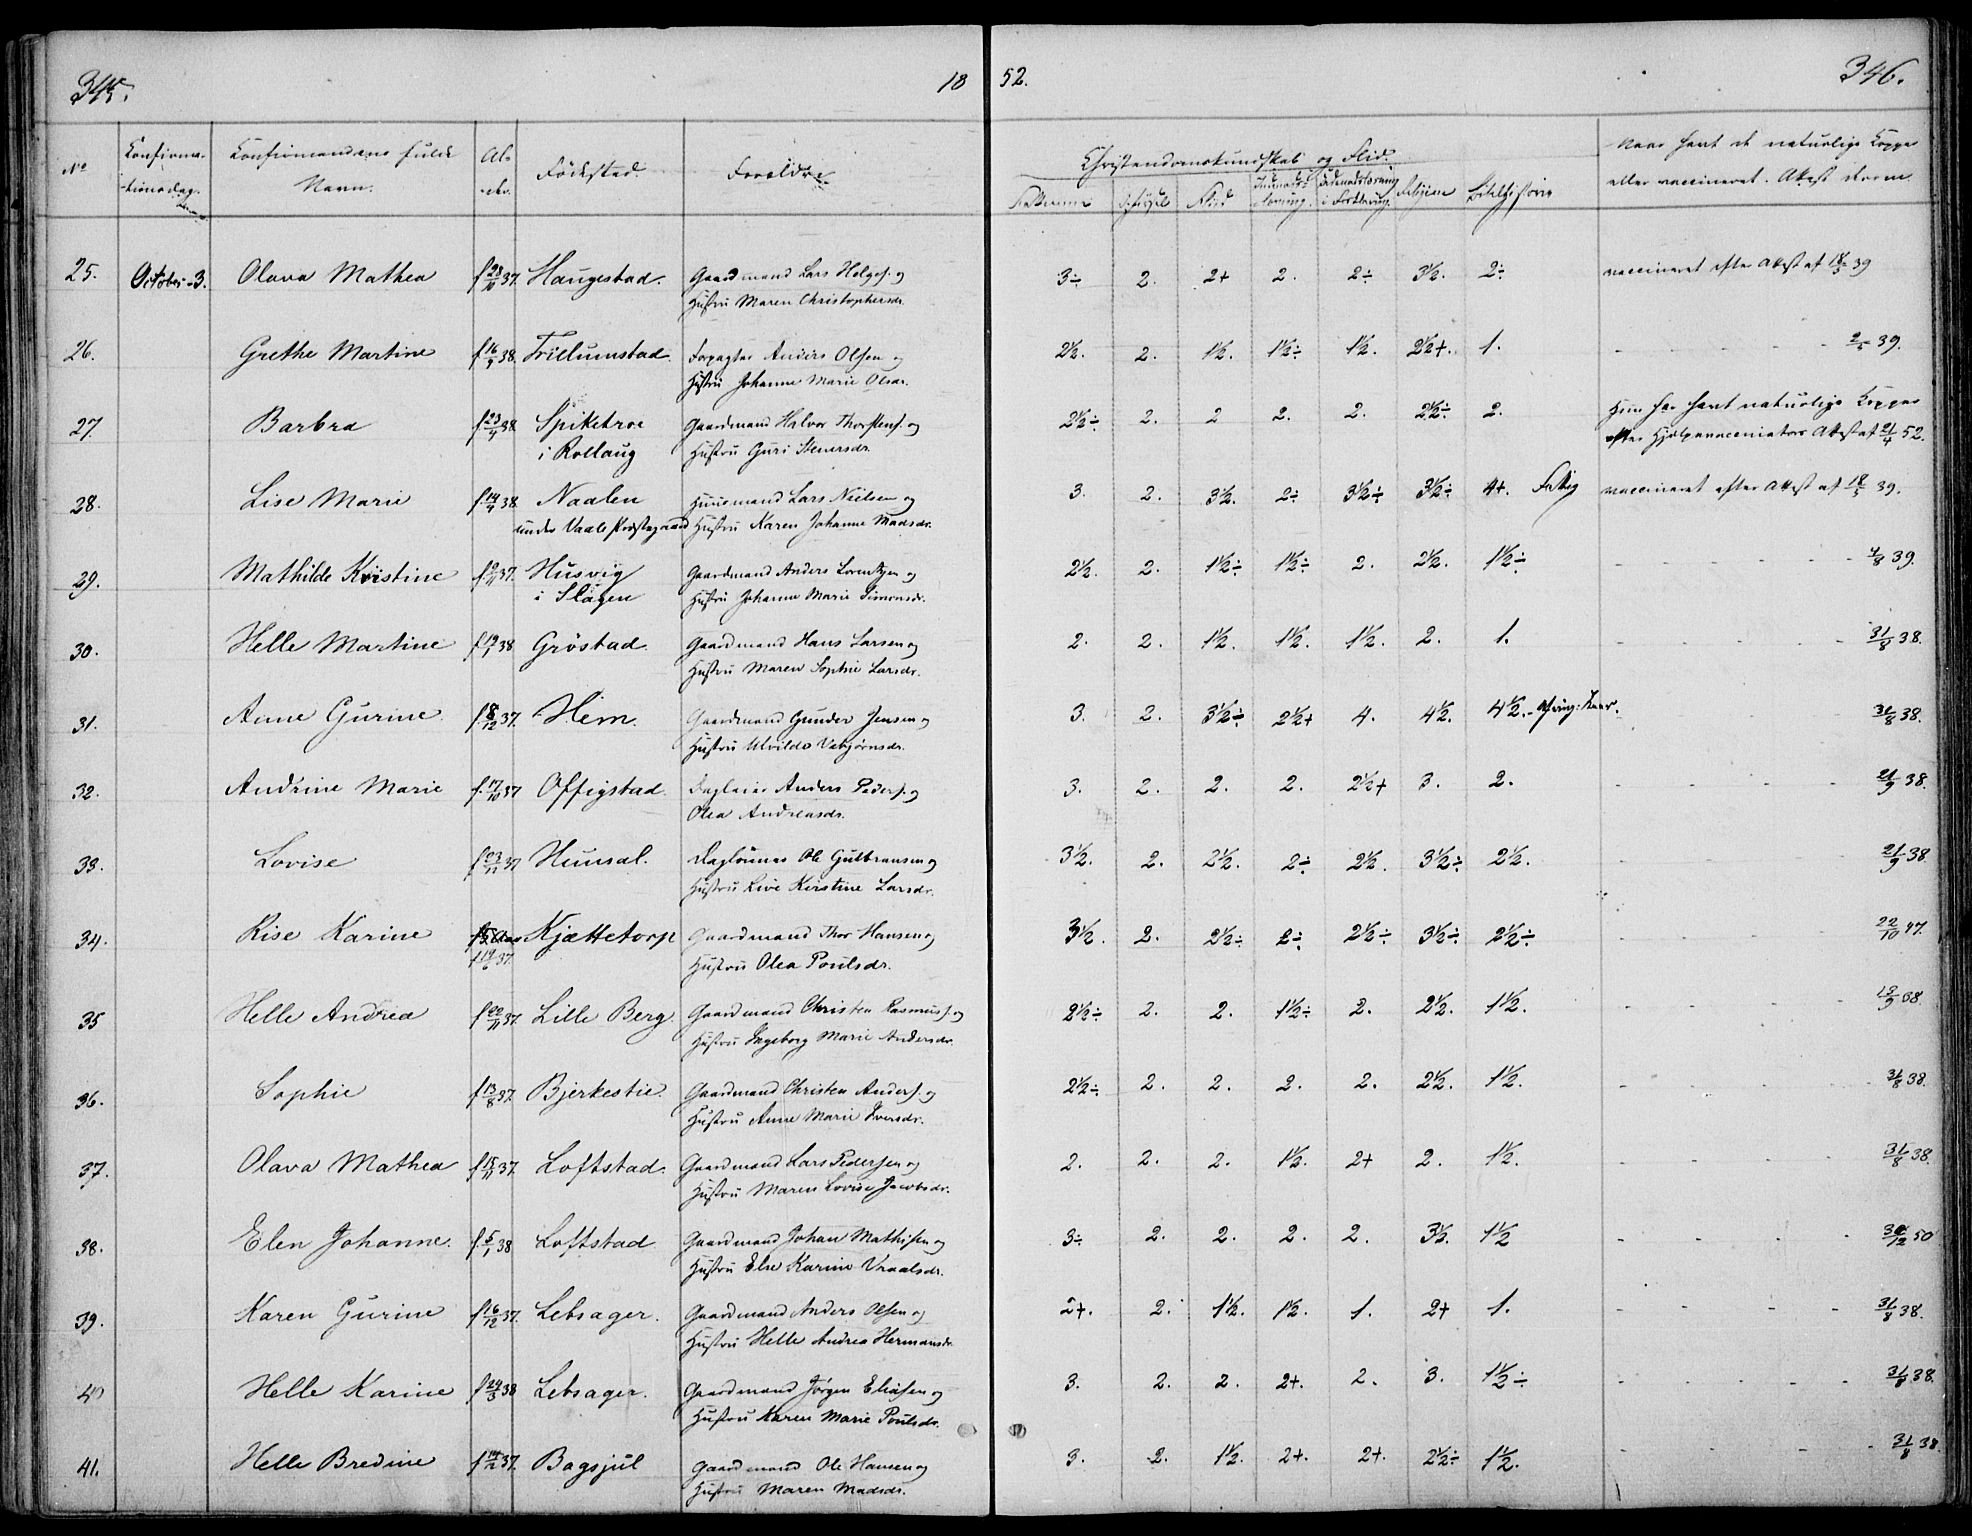 345.
18
52.
346.
No
Confirma-
tionsdag.
Confirmandens fulde
Navn.
Al-
der.
Födested.
Forældre.
Christendomskundskab og Flid.
Flid
Religion
Bibelhistorie
Naar havt de naturlige Kopper
eller vaccineret. Attest derom
25. October 3. Olava Mathea f 28/10 37. Haugestad. Gaardmand Lars Helges. og 3÷ 2. 2+ 2. 2÷ 3½. 2÷ vaccineret efter Attest af 18/5 39
Hustru Maren Christophersdr.
26. Grethe Martine 38. Trillumstad. Forpagter Anders Olsen og 2½. 2. 1½. 1½÷ 1½. 2½+. 1. - - - - - 39.
Hustru Johanne Marie Olsdr.
27. Barbra f 23/4 38. Spiketroe Gaardmand Halvor Thorstens. og 2½÷ 2. 2 2. 2. 2½÷ 2. Hun har havt naturlige Kopper
i Rollaug Hustru Guri Steversdr. efter Hjelpevaccinators Attest af 21/4 52.
28. Lise Marie 38. Naalen Huusmand Lars Nielsen og 3. 2. 3½. 2÷ 3½÷ 3½÷ 4+. vaccineret efter Attest af 18/5 39.
under Vaale Præstegaard Hustru Karen Johanne Madsdr.
29. Mathilde Kristine 37. Husvig Gaardmand Anders Lorentzen og 2½. 2. 1½÷ 1½÷ 2. 2½. 1½÷ - - - - - 4/8 39.
i Slagen Hustru Johanne Marie Simonsdr.
30. Helle Martine f 19/1 38 Gröstad. Gaardmand Hans Larsen og 2. 2. 1½. 1½. 1½. 2. 1. - - - - - 31/8 38.
Hustru Maren Sophie Larsdr.
31. Anne Gurine f. 8/12 37. Hem. Gaardmand Gunder Jensen og 3. 2. 3½÷ 2½+ 4. 4½. 4½. - - - 31/8 38.
Hustru Alvilde Vebjørnsdr.
32. Andrine Marie f. 17/10 37 Offigstad. Anders Peders. og 3. 2. 2. 2. 2½+ 3. 2. - - - - 21/9 38.
Olea Andreasdr.
33. Lovise f 23/11 37 Huusal. Daglönner Ole Gulbransen og 3½. 2. 2½. 2÷ 2½. 3½÷ 2½. - - - - 21/9 38
Hustru Live Kirstine Larsdr.
34. Rise Karine Kjættetorp Gaardmand Thor Hansen og 3½. 2. 2½÷ 2÷ 2½÷ 3½÷ 2½÷ - - - - 22/10 47.
f 19/6 37. Hustru Olea Poulsdr.
35 Helle Andrea f 20/11 37. Lille Berg. Gaardmand Christen Rasmuss. og 2½÷ 2. 2. 1½÷ 2. 2½. 1½. - - - - 38.
Hustru Ingeborg Marie Andersdr.
36. Sophie f. 13/8 37. Bjerkestie. Gaardmand Christen Anders. og 2½÷ 2. 2. 2. 2. 2½. 1½. - - - - 31/8 38.
Hustru Anne Marie Iversdr.
37. Olava Mathea f 15/11 37. Loftstad. Gaardmand Lars Pedersen og 2. 2. 2. 1½. 2+ 2. 1½. - - - - 31/8 38.
Hustru Maren Lovise Jacobsdr.
38. Elen Johanne. f. 5/1 38 Loftstad Gaardmand Johan Mathisen og 3÷ 2. 2. 2. 2. 3½. 1½ - - - - 50
Hustru Else Karine Vraalsdr.
39. Karen Gurine f 16/12 37. Lebsager. Gaardmand Anders Olsen og 2+. 2. 1½. 1½. 1. 2+ 1. - - - - 31/8 38.
Hustru Helle Andrea Hermansdr.
40 Helle Karine f 24/3 38 Lebsager. Gaardmand Jørgen Eliasen og 3. 2. 2. 2+. 2. 3. 1½÷ - - - - 31/8 38.
Hustru Karen Marie Poulsdr.
41. Helle Bredine 37. Bagsjul Gaardmand Ole Hansen og 3. 2. 1½. 2+. 2+. 2½÷ 1½. - - - - 31/8 38
Hustru Maren Madsdr.